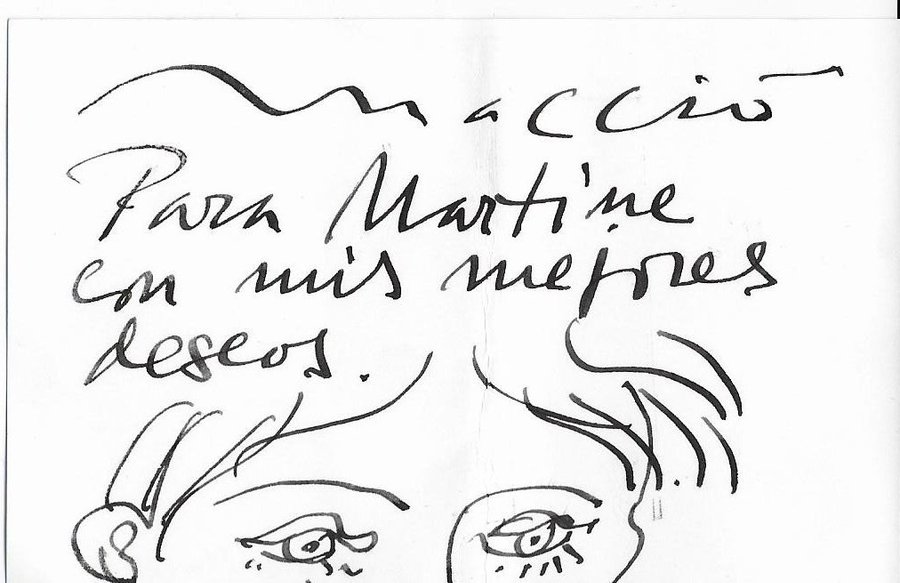 Macció
Para Martine
con mis mejores
deseos.